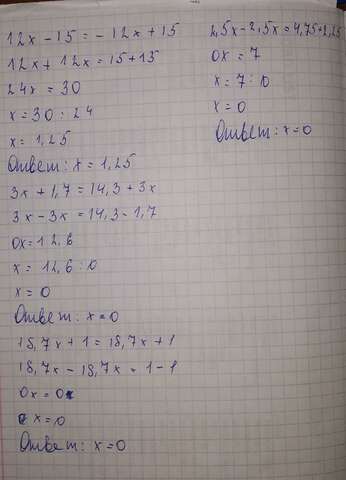 12x - 15 = - 12x + 15
12x + 12x = 15 + 15
24x = 30
x = 30 : 24
x = 1,25
Ответ: x = 1,25
3x + 1,7 = 14,3 + 3x
3x - 3x = 14,3 - 1,7
0x = 12,6
x = 12,6 : 0
x = 0
Ответ: x = 0
18,7x + 1 = 18,7x + 1
18,7x - 18,7x = 1 - 1
0x = 0
x = 0
Ответ: x = 0
2,5x - 2,5x = 4,75 + 2,25
0x = 7
x = 7 : 0
x = 0
Ответ: x = 0